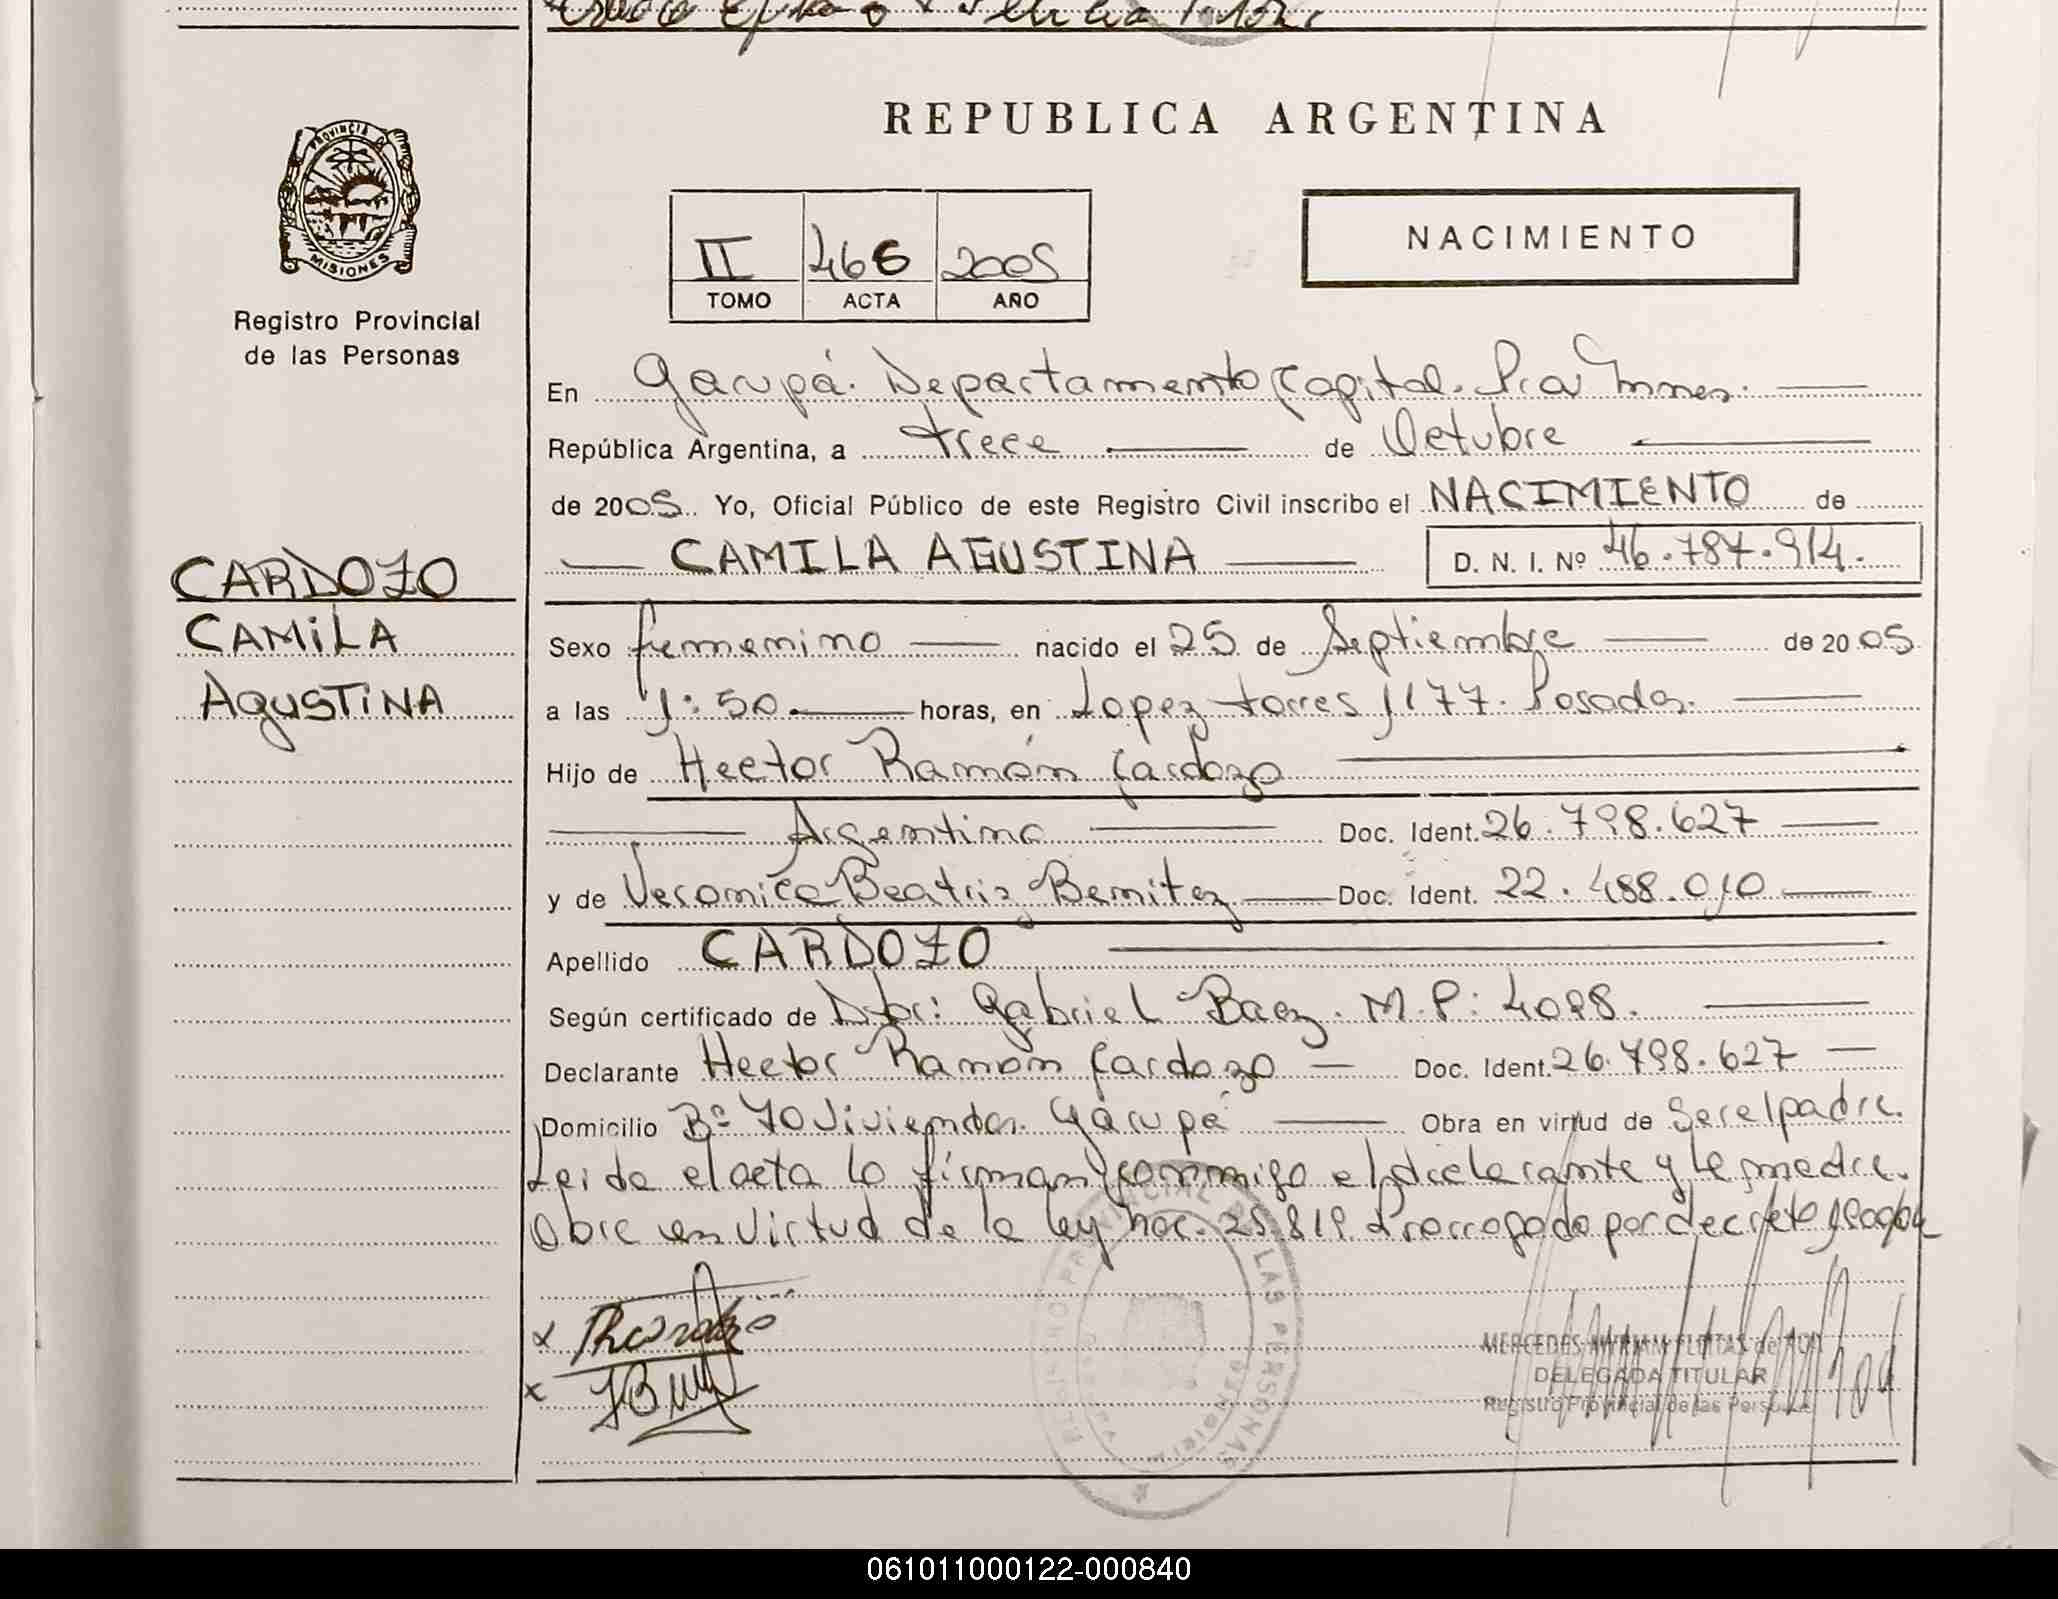 PROVINCIA DE
MISIONES
Registro Provincial
de las Personas
CARDOZO
CAMILA
AGUSTINA
REPUBLICA ARGENTINA
II 466 2005
TOMO ACTA AÑO
NACIMIENTO
En Garupá. Departamento Capital.
República Argentina, a trece de Octubre
de 2005 Yo, Oficial Público de este Registro Civil inscribo el NACIMIENTO de
CAMILA AGUSTINA D. N. I. Nº 46.787.914.
Sexo femenino nacido el 25 de Septiembre de 2005
a las 1:50 horas, en Lopez torres 1177. Posadas.
Hijo de Hector Ramón Cardozo
Argentina Doc. Ident. 26.798.627
y de Veronica Beatriz Benitez Doc. Ident. 22.488.010
Apellido CARDOZO
Según certificado de Gabriel Baez. M.P: 4098.
Declarante Hector Ramon Cardozo Doc. Ident. 26.798.627
Domicilio Bº 70 Viviendas. Garupá Obra en virtud de Ser el padre.
Leida el acta la firman conmigo el declarante y la madre.
Obra en virtud de la ley nac. 25.819. Prorrogada por decreto
REGISTRO PROVINCIAL DE LAS PERSONAS
MERCEDES MYRIAM FLEITAS de
DELEGADA TITULAR
Registro Provincial de las Personas
061011000122-000840